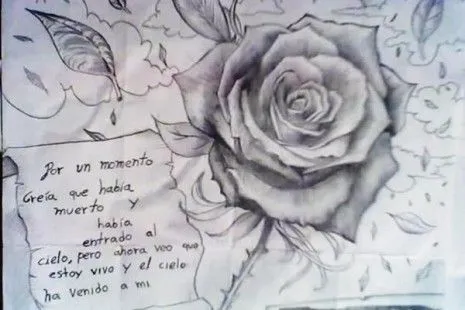 Por un momento
Creía que había
muerto y
había
entrado al
cielo, pero ahora veo que
estoy vivo y el cielo
ha venido a mi